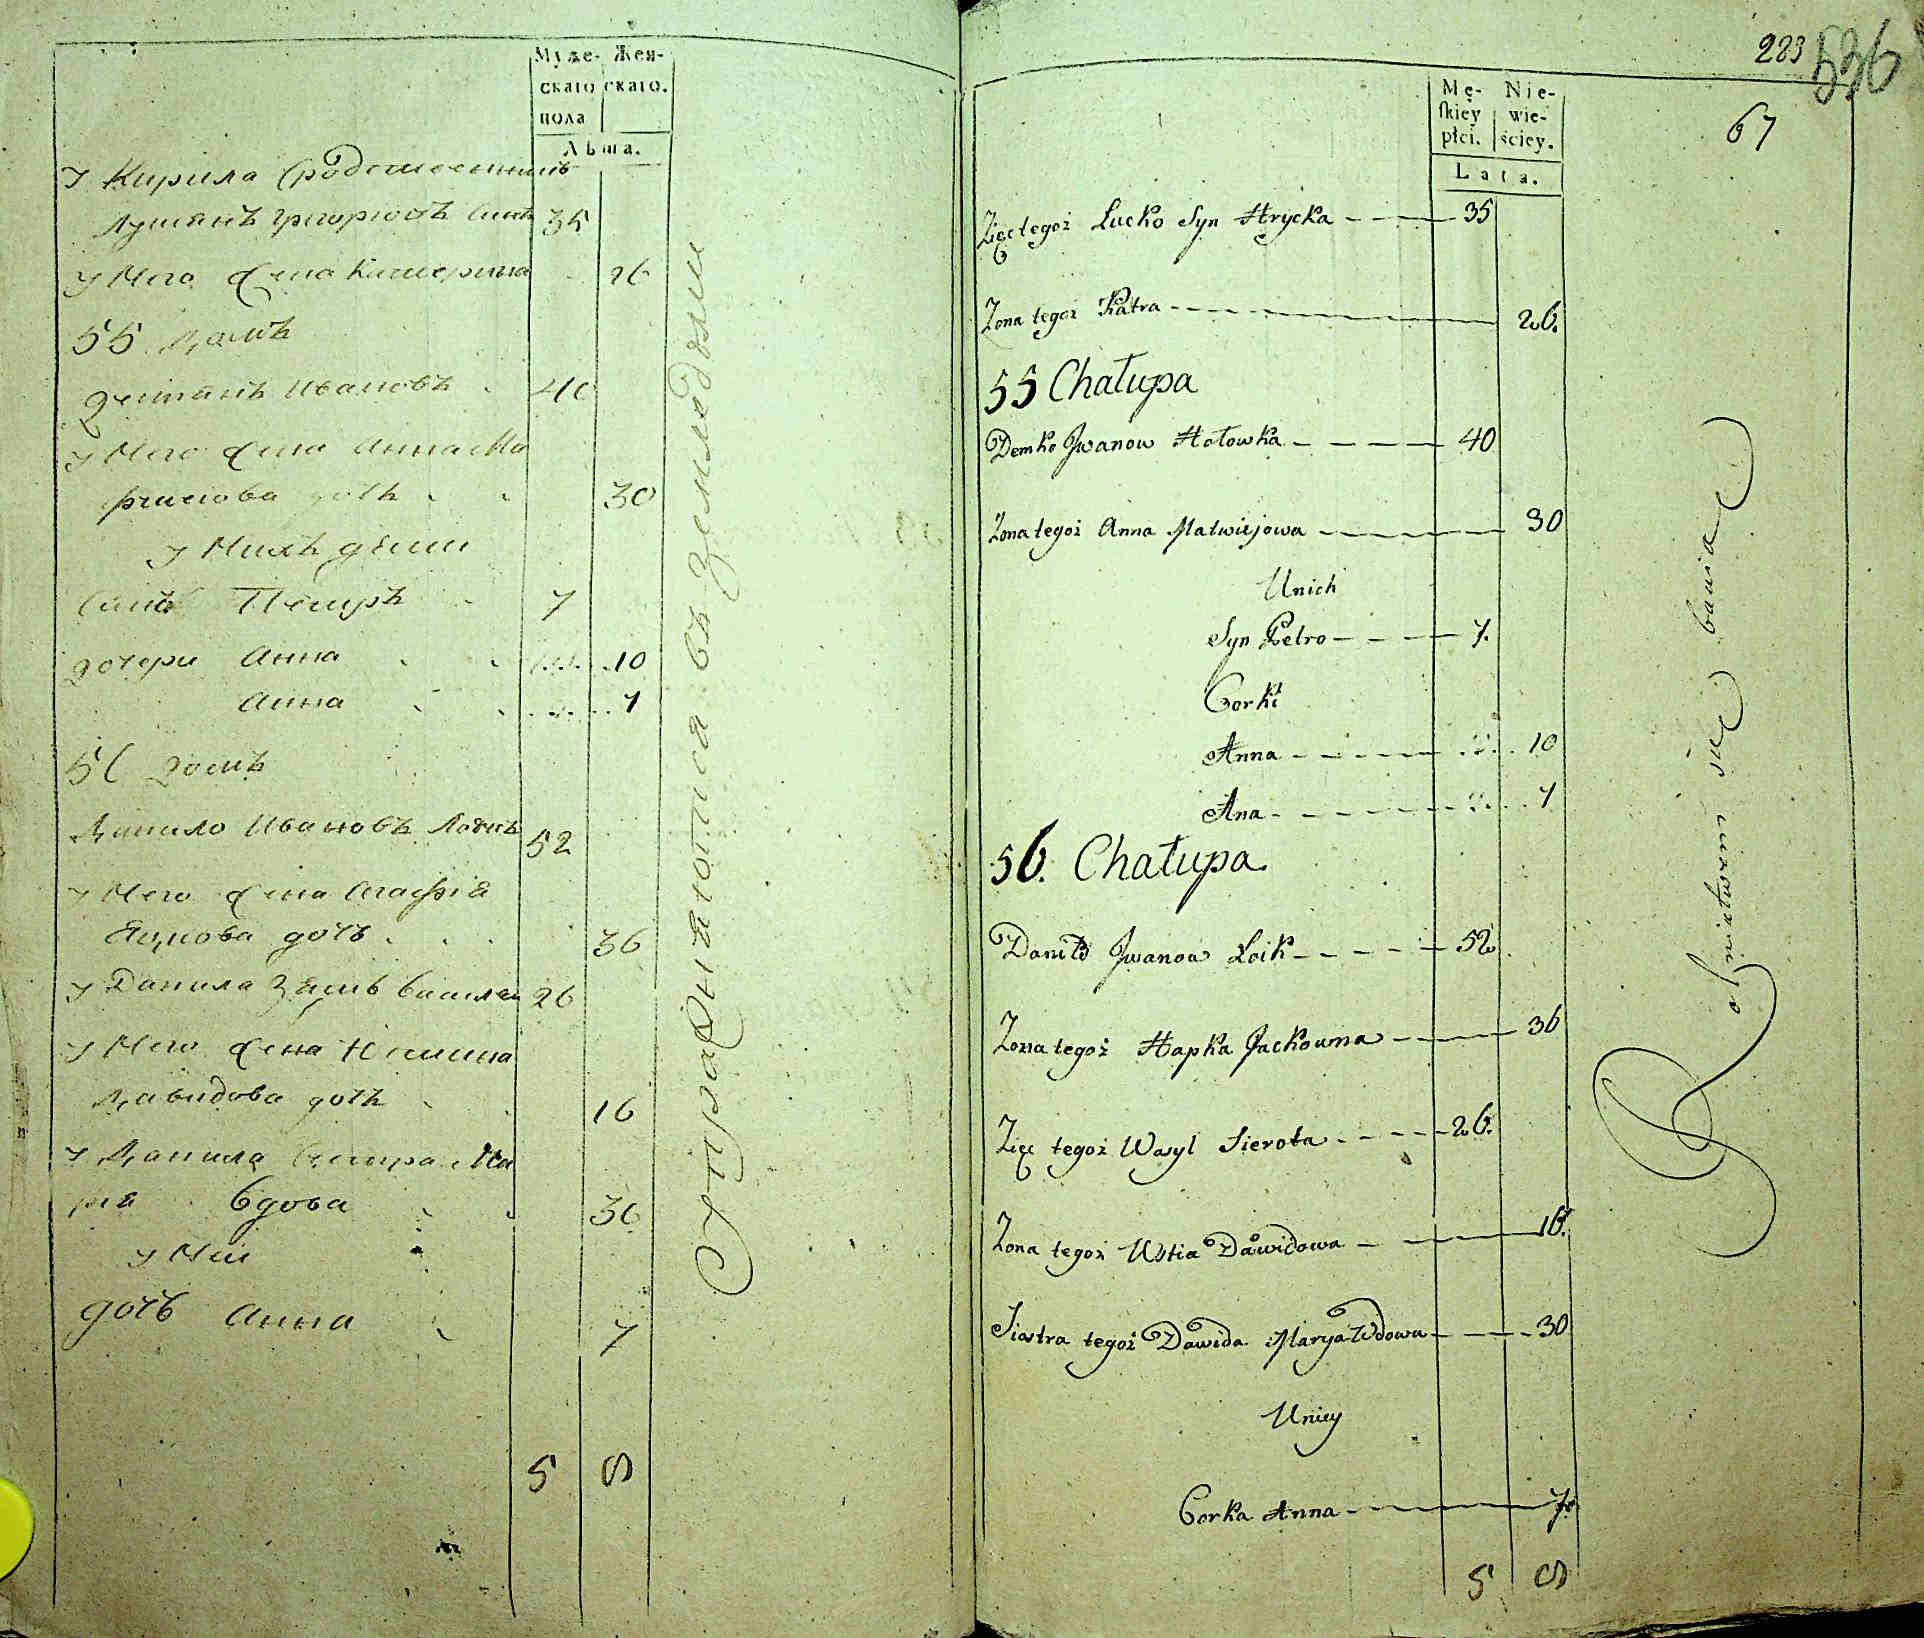 Муже- Жен-
скаго скаго.
пола
Лѣта.
У Кирила Сродственникъ
Лукянъ Григорювъ Синъ 35
У Него Жена Катерина 26
55 Домъ
Демянъ Ивановъ 40
У Него Жена Анна Ма
дочь 30
У Нихъ дѣти
Синъ Петръ 7
дочери Анна 10
Анна 1
56 домъ
Данило Ивановъ 52
У Него Жена Агафія
Яцкова дочь 36
У Данила Зять Василей 26
У Него Жена Юстина
Давидова дочь 16
У Данила Сестра Ма
рія вдова 30
У Ней
дочь Анна 7
5 8
Упражняются въ земледѣліи
283
536
67
Mę- Nie-
skiey wie-
płci. ściey.
Lata.
Zięć tegoż Lucko Syn Hrycka 35
Zona tegoż Katra 26.
55 Chałupa
Demko Jwanow Hołowka 40
Zona tegoż Anna Matwiejowa 30
Unich
Syn Petro 7.
Corki
Anna 10
Ana 1
56. Chałupa
Daniło Jwanow Łoik 52
Zona tegoż Hapka Jackowna 36
Zięć tegoż Wasyl Sierota 26.
Zona tegoż Ustia Dawidowa 16.
Siostra tegoż Dawida Marya Wdowa 30
Uniey
Corka Anna 7.
5 8
Rolnictwem się bawią